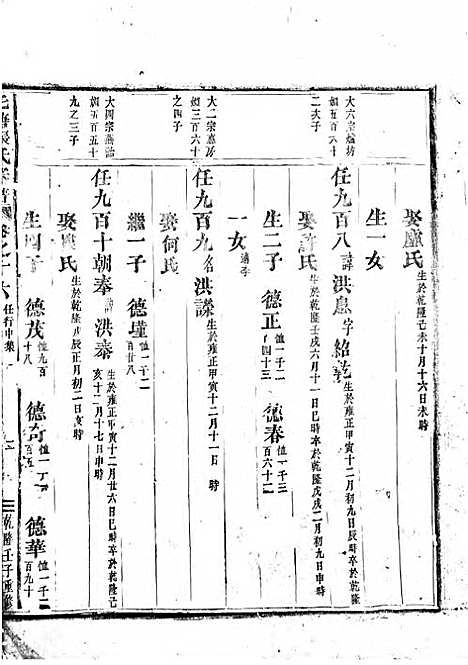 娶盧氏 生於乾隆己未十月十六日未時
生一女
大六
二次子
任九百八 諱洪息字紹乾 生於雍正甲寅十二月初九日申時卒於乾隆戊戌二月初九日申時
娶許氏 生於乾隆壬戌六月十一日巳時卒於乾隆
生二子 德正 恤一千二百四十三 德春 恤一千三百六十二
一女 適李
大二宗
如三百六十
之四子
任九百九 名洪謙 生於雍正甲寅十二月十一日 時
娶何氏
繼一子 德瑾 恤一千二百廿八
大四宗
如五百五十
九之三子
任九百十朝奉 諱洪泰 生於雍正甲寅十二月廿六日巳時卒於乾隆己亥十二月十七日申時
娶盧氏 生於乾隆戊辰正月初二日亥時
生四子 德茂 恤九百十八 德奇 德華 恤一千二百九十
張氏宗譜 卷之十六 任行中集 乾隆壬子重修